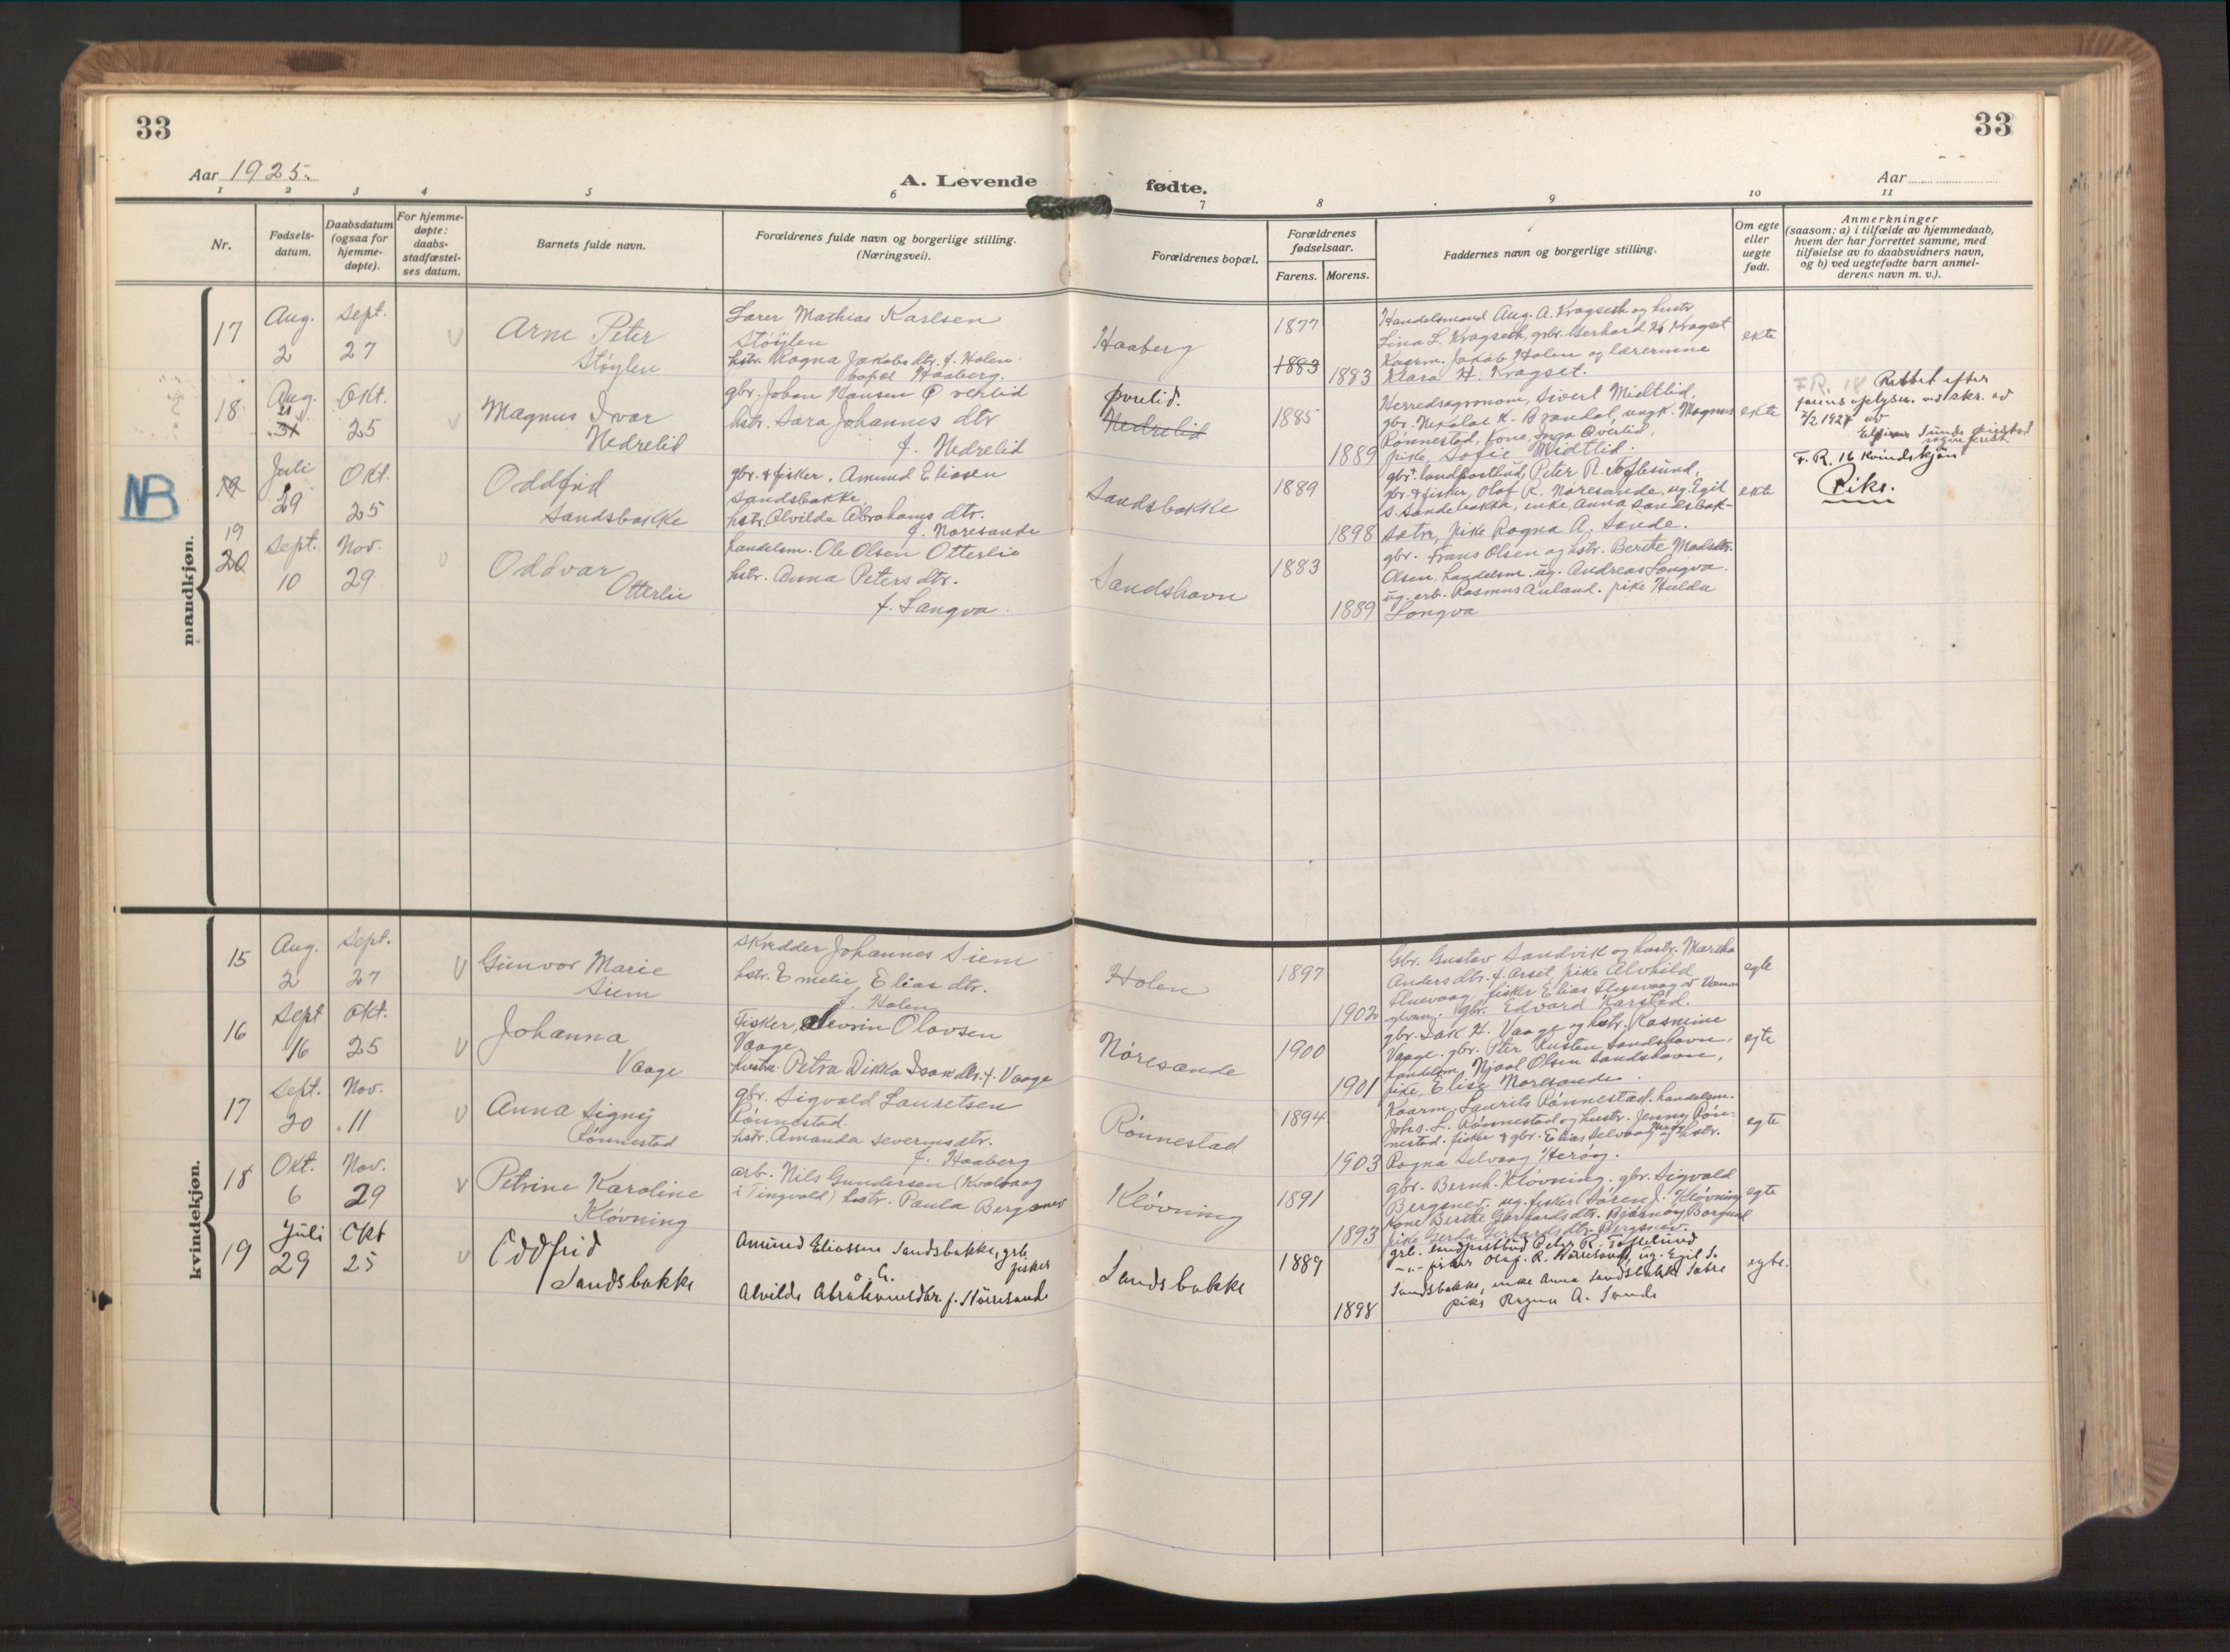 33
33
Aar 1925.
A. Levende
fødte.
Aar
1 2 3 4 5 6 7 8 9 10 11
Nr.
Fødsels-
datum.
Daabsdatum
(ogsaa for
hjemme-
døpte).
For hjemme-
døpte:
daabs-
stadfæstel-
ses datum.
Barnets fulde navn.
Forældrenes fulde navn og borgerlige stilling.
(Næringsvei).
Forældrenes bopæl.
Forældrenes
fødselsaar.
Farens. Morens.
Faddernes navn og borgerlige stilling.
Om egte
eller
uegte
født.
Anmerkninger
(saasom: a) i tilfælde av hjemmedaab,
hvem der har forrettet samme, med
tilføielse av to daabsvidners navn,
og b) ved uegtefødte barn anmel-
derens navn m. v.).
mandkjøn.
17
Aug.
2
Sept.
27
Arne Peter
Støylen
Lærer Mathias Karlsen
Støylen
hstr. Ragna Jakobs dtr. f. Holen
bopæl Haaberg.
Haaberg
1877
1883
1883
Handelsmand Aug. A. Kragseth og hustr
Lina L. Kragseth, gbr. Gerhard K. Kragset
Kaarm. Jakob Holen og lærerinne
Klara H. Kragset.
ekte
18
Aug.
21
31
Okt.
25
Magnus Ivar
Nedrelid
gbr. Johan Hansen Øvrelid
hstr. Sara Johannes dtr
f. Nedrelid
Øvrelid.
Nedrelid
1885
1889
Herredsagronom, Sivert Midtlid,
gbr. Nikolai K. Brandal, ungk. Magnus
Rønnestad, Kone, Inga Øverlid,
pike, Sofie Midtlid.
ekte
F.R. 18 Rettet efter
7/2 1927
NB
19
19
Juli
29
Okt.
25
Oddfrid
Sandsbakke
gbr. & fisker, Amund Eliasen
Sandsbakke,
hstr. Alvilde Abrahams dtr.
f. Nøresande
Sandsbakke
1889
1898
gbr. & landpostbud, Peter R. Toftesund,
gbr. & fisker, Olaf R. Nøresande, ug. Egil
S. Sandsbakke, enke, Anna Sandsbak-
Sætre, pike Ragna A. Sande.
ekte
F. R. 16 Kvindekjøn
Pike.
20
Sept.
10
Nov.
29
Oddvar
Otterlei
handelsm. Ole Olsen Otterlei
hstr. Anna Peters dtr.
f. Langva
Sandshavn
1883
1889
gbr. Frans Olsen og hstr. Berthe Madsdtr.
Olsen, handelsm. ug. Andreas Longva.
ug. arb. Rasmus Auland. pike Hulda
Longva
kvindekjøn.
15
Aug.
2
Sept.
27
Gunvor Marie
Siem
skredder Johannes Siem
hstr. Emelie Elias dtr.
f. Holen
Holen
1897
1902
Gbr. Gustav Sandvik og hustr. Martha
Anders dtr. f. Arset, pike Alvhild
Fluevaag, fisker Elias Fluevaag v Vann
gbr. Edvard Karstad.
egte
16
Sept
16
Okt.
25
Johanna
Vaage
Fisker, Severin Olavsen
Vaage
hustr. Petra Dikka Isak dtr. f. Vaage
Nøresande
1900
1901
gbr. Isak H. Vaage og hstr. Rasmine
Vaage. gbr. Peter Rusten Sandshavn,
handelsm. Njaal Olsen Sandshavn,
pike, Elise Nøresande.
egte
17
Sept.
20
Nov.
11
Anna Signy
Rønnestad
gbr. Sigvald Lauretsen
Rønnestad.
hstr. Amanda Severins dtr.
f. Haaberg
Rønnestad
1894
1903
Kaarm. Laurits Rønnestad. handelsm.
Johs. L. Rønnestad og hustr. Jenny Røn-
nestad. fisker & gbr. Elias Selvaag Herøy og hstr.
Ragna Selvaag Herøy.
egte
18
Okt.
6
Nov.
29
Petrine Karoline
Kløvning
arb. Nils Gundersen (Kvalvaag
i Tingvold) hstr. Paula Bergsnev
Kløvning
1891
1893
gbr. Bernh. Kløvning. gbr. Sigvald
Bergsnev. ug. fisker Søren J. Kløvning
kone Berthe Gerhards dtr. Bjørnøy Borgund
pike Gerda Gerhards dtr. Bergsnev.
egte
19
Juli
29
Okt
25
Oddfrid
Sandsbakke
Amund Eliassen Sandsbakke, grb.
fisker
o. h.
Alvilde Abrahamsdtr. f. Nøresande
Sandsbakke
1889
1898
grb. landpostbud Peter R. Toftesund
-"- fisker Olaf. R. Nøresande, ug. Egil S.
Sandsbakke, enke Anna Sandsbakke Sætre
pike Ragna A. Sande
egte.